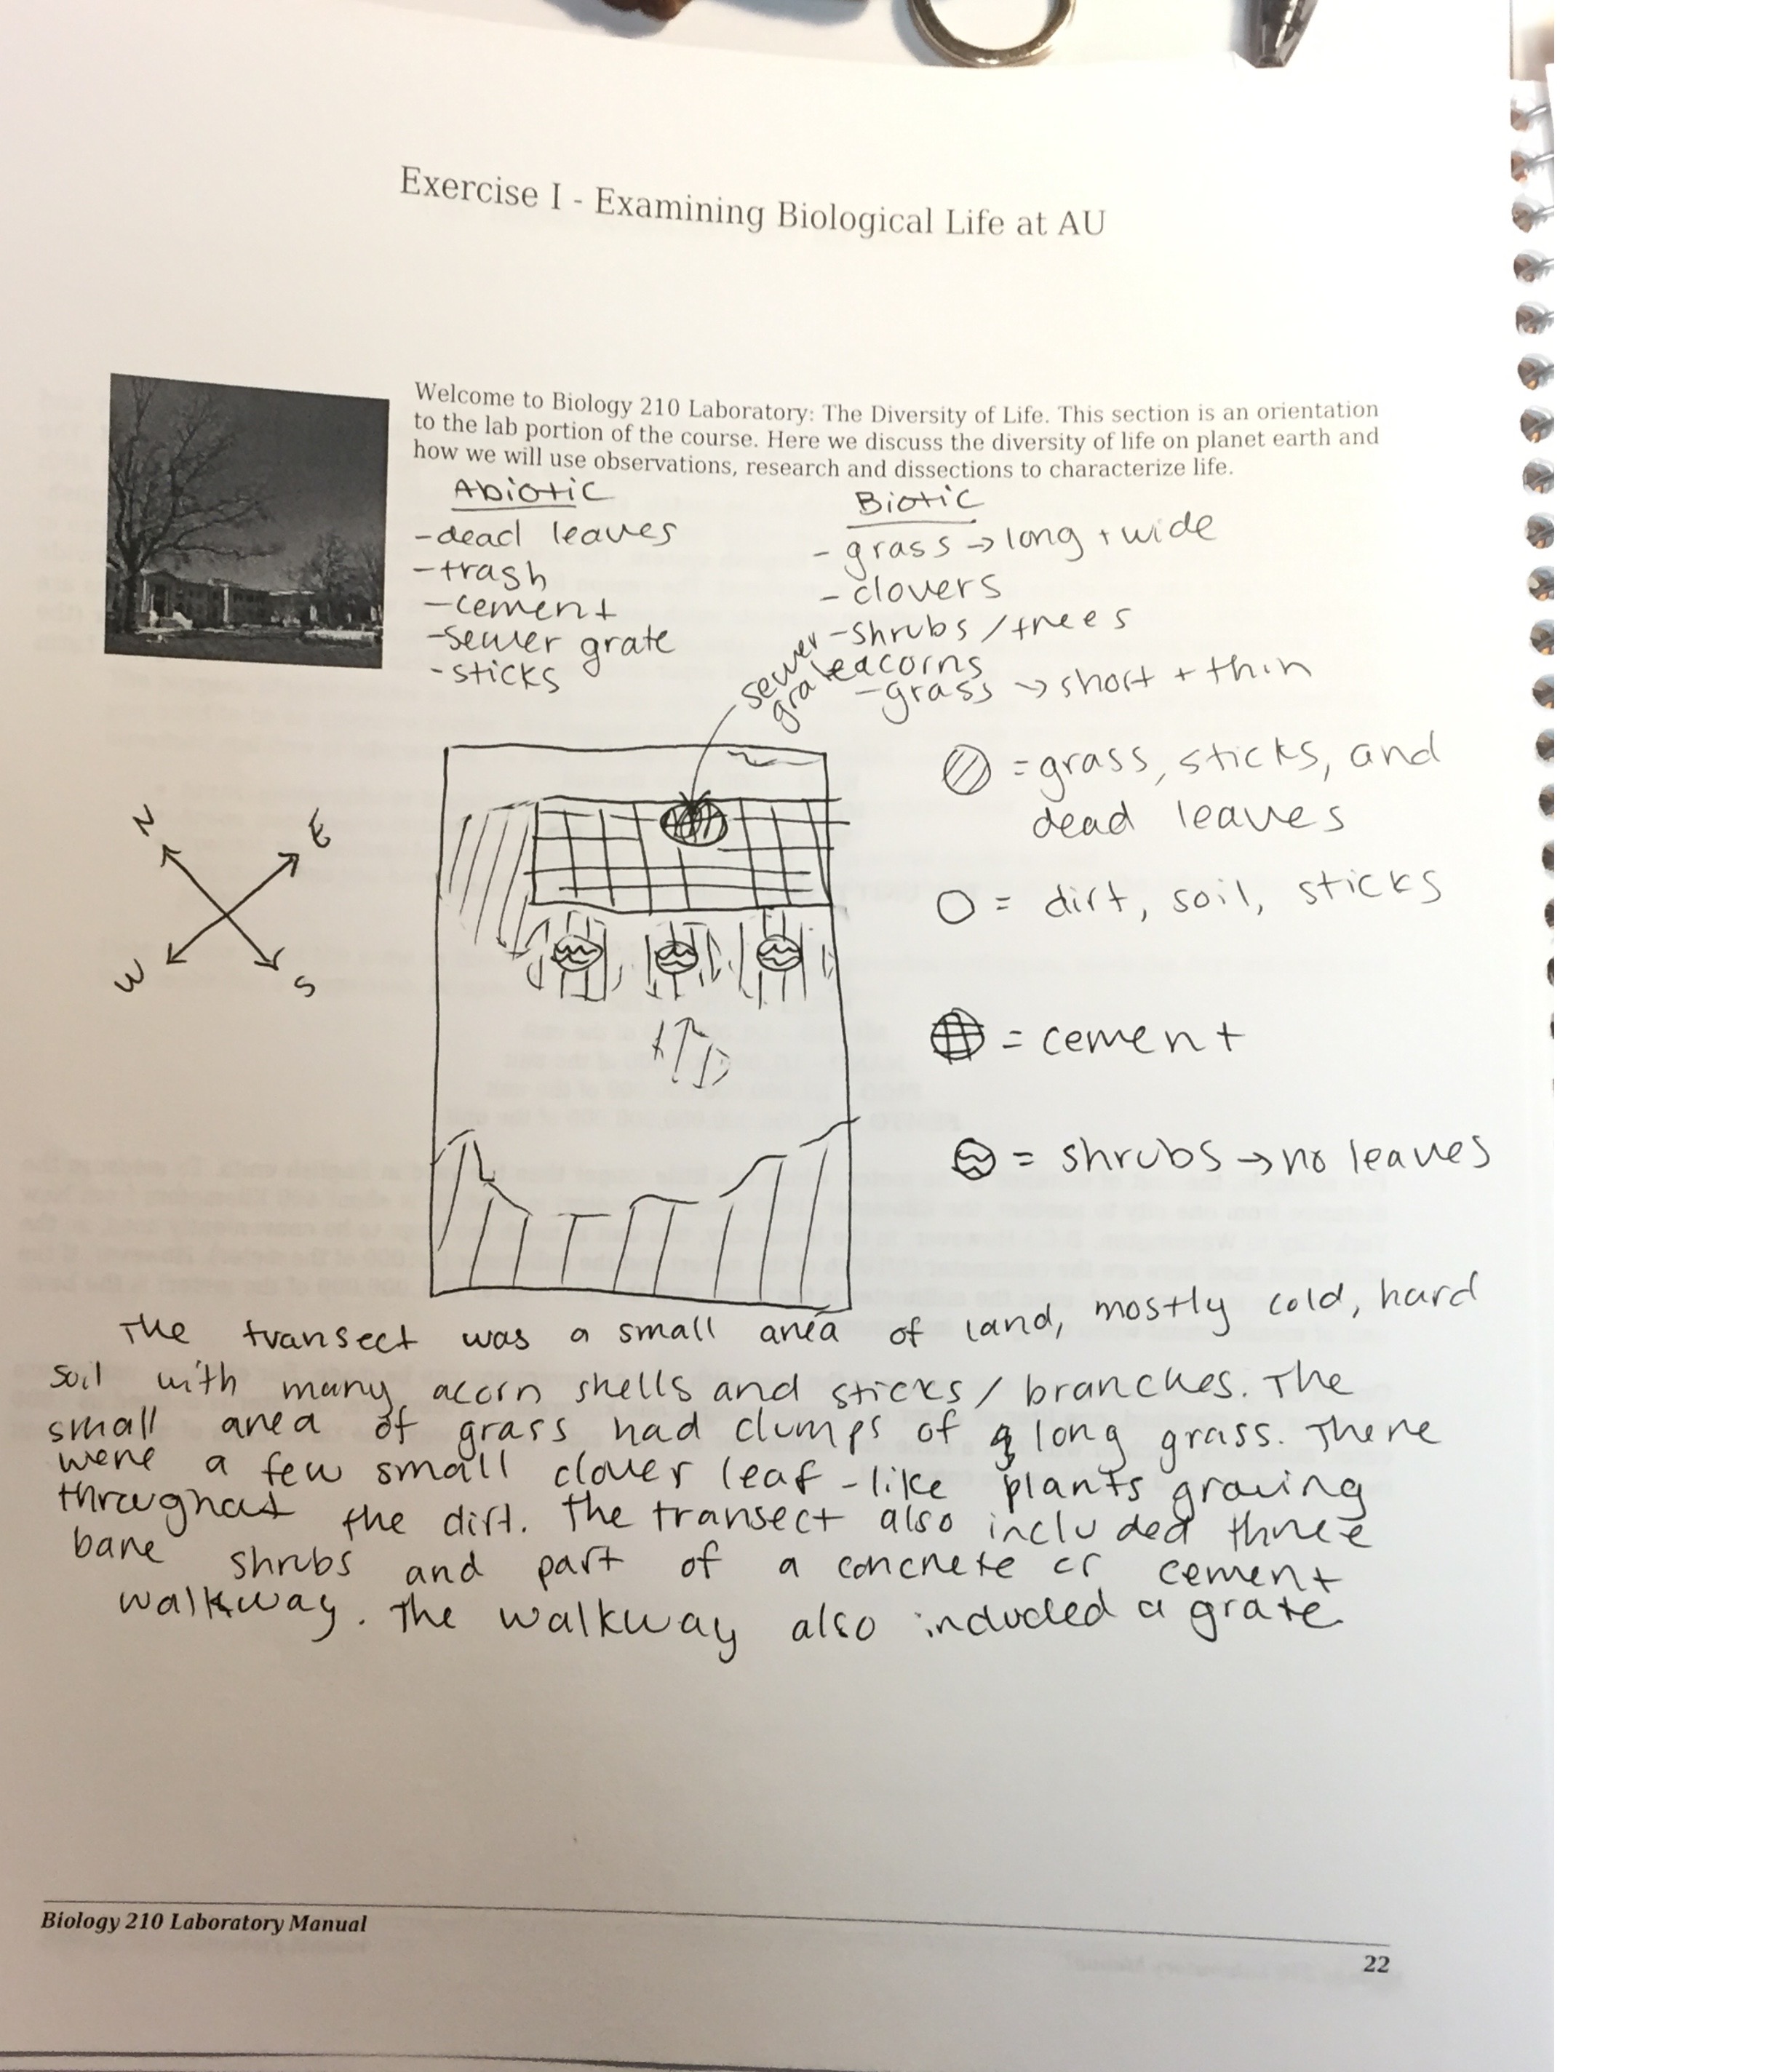 Exercise I - Examining Biological Life at AU
Welcome to Biology 210 Laboratory: The Diversity of Life. This section is an orientation
to the lab portion of the course. Here we discuss the diversity of life on planet earth and
how we will use observations, research and dissections to characterize life.
Abiotic
-dead leaves
-trash
-cement
-sewer grate
-sticks
Biotic
- grass → long + wide
- clovers
-shrubs/trees
acorns
-grass → short + thin
sewer
grate
N
E
W
S
= grass, sticks, and
dead leaves
= dirt, soil, sticks
= cement
= shrubs → no leaves
The transect was a small area of land, mostly cold, hard
soil with many acorn shells and sticks/branches. The
small area of grass had clumps of long grass. There
were a few small clover leaf-like plants growing
throughout the dirt. The transect also included three
bare shrubs and part of a concrete or cement
walkway. The walkway also included a grate
Biology 210 Laboratory Manual
22